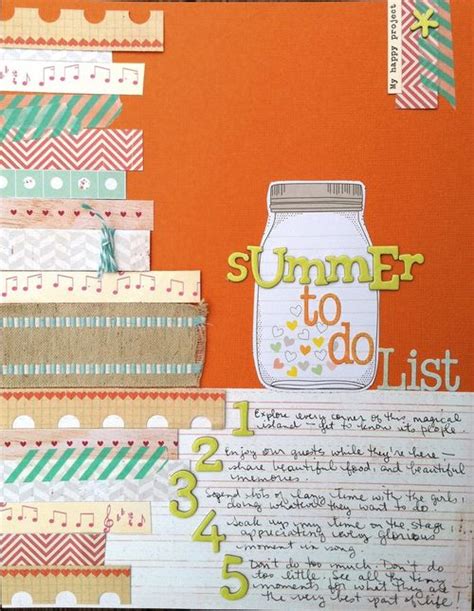 My happy project
summer
to
do
List
1 Explore every corner of this magical
island – get to know its people
2 Enjoy our guests while they're here –
share beautiful food, and beautiful
memories.
3 Spend lots of time with the girls,
doing whatever they want to do
4 Soak up my time on the stage,
appreciating every glorious
moment in song.
5 Don't do too much. Don't do
too little. See all the tiny
moments for what they are –
the very best part of life!